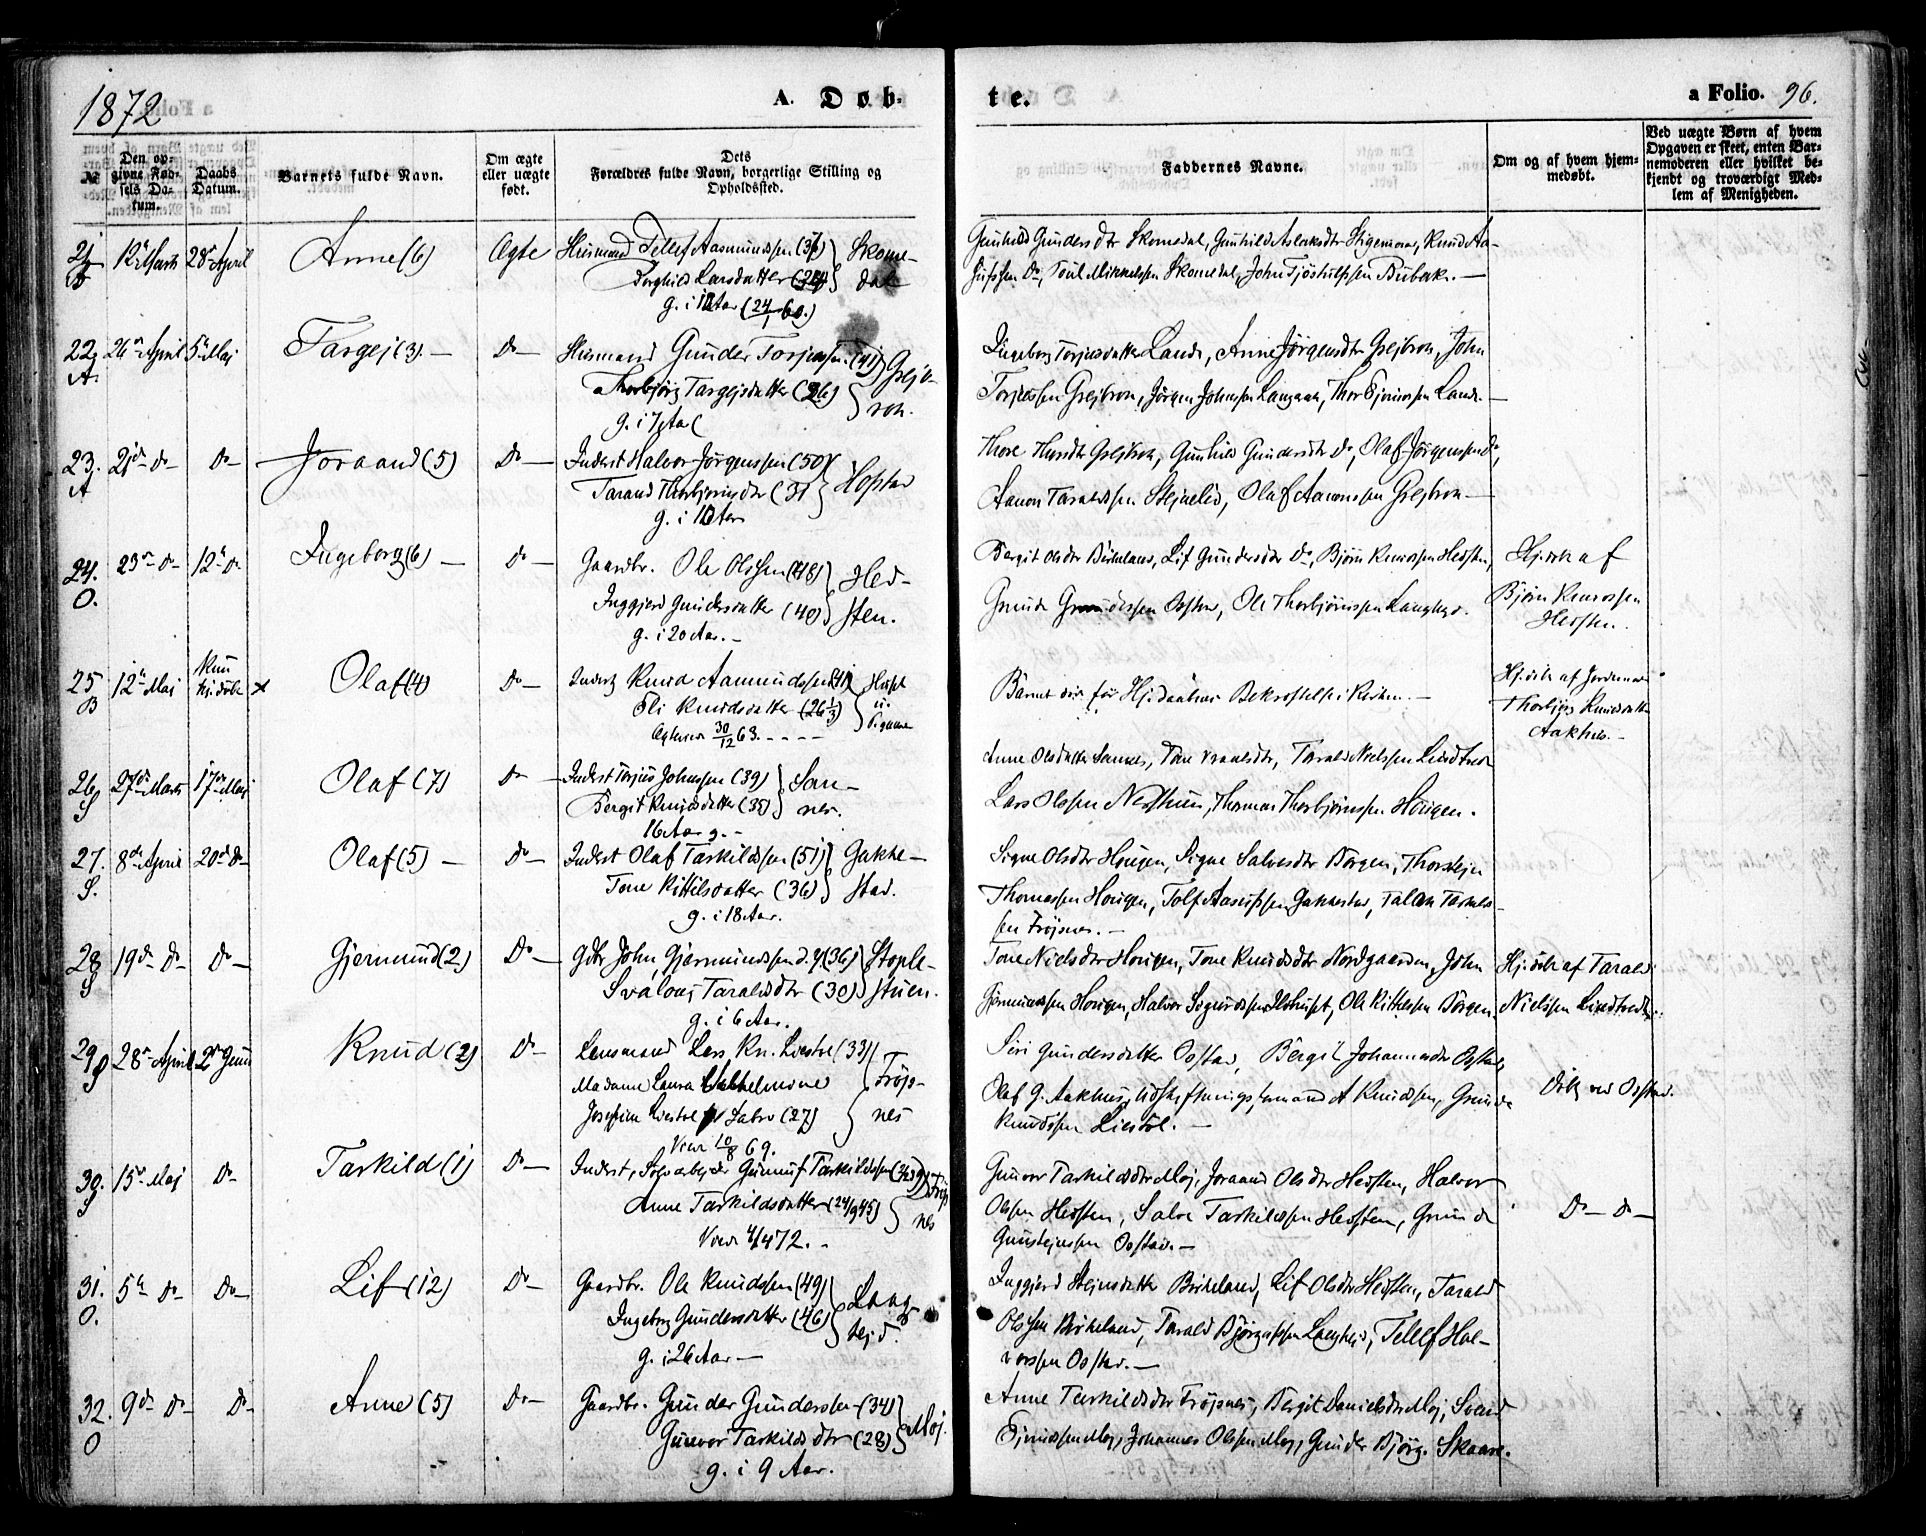 1872
A. Døb-
te.
a Folio. 96.
№
Den op-
givne Fød-
sels Da-
tum.
Daabs
Datum.
Barnets fulde Navn.
Om ægte
eller uægte
født.
Dets
Forældres fulde Navn, borgerlige Stilling og
Opholdssted.
Faddernes Navne.
Om og af hvem hjem-
medøbt.
Ved uægte Børn af hvem
Opgaven er skeet, enten Bar-
nemoderen eller hvilket be-
kjendt og troværdigt Med-
lem af Menigheden.
21 12te Marts 28de April Anne (6) Ægte Husmand Tellef Aasmundssen (36) Skome-
Torghild Larsdatter dal
g. i 12 Aar (24/1 60.)
Gunhild Gundersdtr Skomedal, Gunhild Aslaksdtr Stigemoen, Knud Aa-
sulfssen Do, Mikkelssen Skomedal, John Tjøstulfssen Bubak. —
22. A. 26de April 5te Maj Targej (3). — Do — Husmand Gunder Torjussen (41) Grejb-
Thorbjørg Targejsdatter (26) ron.
g. i 7 Aar
Ingeborg Torjusdatter Lande, Anne Jørgensdtr Grejbron, John
Torjussen Grejbron, Jørgen Johnssen Langaak, Thor Lande. —
23. A 21de Do — Do — Joraand (5) Do — Inderst Halvor Jørgenssen (50) Hofstad
Tarand Thorbjørnsdtr (31
g. i 10 Aar
Thore Grejbron, Gunhild Gundersdtr Do, Olaf Jørgenssen Do,
Aanon Taraldssen Stejnelid, Olaf Aanonssen Grejbron —
24. O. 23de Do — 12te Do Ingeborg (6) — Do Gaardbr. Ole Olssen (48) Hed-
Inggjerd Gundersdatter (40) sten.
g. i 20 Aar. —
Bergit Olsdtr Birkeland, Lif Gundersdtr Do, Bjørn Knudssen Hedsten,
Gunde Gundersen Oostad, Ole Thorbjørnssen Langhejd.
Hj. døbt af
Bjørn Knudssen
Hedsten.
25 B 12te Maj Kun
hj. døbt x Olaf (4) Do — Inderst Knud Aamundssen Huset
Eli Knudsdatter (26 1/3)
Ægteviet 30/12 63. - - - -
Barnet døde før Hj. Daabens Bekræftelse i Kirken. —
Hj. døbt af Jordemor
Thorbjørg Knudsdatter
Aakhus. —
26. S 27de Marts 17de Maj Olaf (7) Do — Inderst Torjus Johnssen (39) San-
Bergit Knudsdatter (35) nes.
16 Aar g. —
Anne Olsdatter Sannes, Tone Taralsdtr, Tarald Nielssen Lindtveit
Lars Olssen Nesthun, Thomas Thorbjørnssen Hougen.
27. S. 8de April 20de Do — Olaf (5) — Do — Inderst Olaf Tarkildssen (51) Gakke-
Tone Kittilsdatter (36) stad.
g. i 18 Aar.
Signe Olsdtr Hougen, Signe Salvesdtr Borgen, Thorstejn
Thomassen Hougen, Tolf Aasulfssen Gakkestad, Tallak Tarkilds-
sen Frøjsnes. —
28 S 19de Do — Do — Gjermund (2) Do — Gdbr John Gjermundssen d. y. (36) Stople-
Svaloug Taraldsdtr (30) stuen.
g. i 6 Aar.
Tone Nielsdtr Hougen, Tone Knudsdtr Nordgaarden, John
Gjermundssen Hougen, Halvor Sigurdssen Ilehuset, Ole Kittelssen Borgen.
Hj. døbt af Tarald
Nielssen Lindtveit.
29 S 28de April 2den Juni Knud (2) Do — Lensmand Lars Kn. Liestøl (33) Frøjs-
Madame Laura Wilhelmine nes
Josefine Liestøl f. (27)
Viede 10/8 69.
Siri Gundersdatter Oostad, Bergit Johannesdtr Oostad,
Olaf G. Aakhus, A Knudssen, Gunde
Knudssen Liestøl. —
Døbt ved Oostad.
30. S 15de Maj Do Tarkild (1) Do — Inderst, Gunnuf Tarkildssen Frøjs-
Anne Tarkildsdatter (24/9 45) nes
Viede 4/4 72. —
Gunvor Tarkildsdtr Moj, Joraand Olsdtr Hedsten, Halvor
Olssen Hedsten, Salve Tarkildssen Hedsten, Gunde
Gunstejnssen Oostad. —
Do — Do —
31. O. 5te Do — Do — Lif (12) Do — Gaardbr. Ole Knudssen (49) Lang-
Ingeborg Gundersdatter (46) hejd.
g. i 26 Aar —
Inggjerd Stejnsdatter Birkeland, Lif Olsdtr Hedsten, Tarald
Olssen Birkeland, Tarald Bjørgufssen Langhejd, Tellef Hal-
vorssen Oostad. —
32. O 9de Do — Do — Anne (5) Do — Gaardbr. Gunder Gunderssen (34) Moj.
Gunvor Tarkildsdtr (28)
g. i 9 Aar.
Anne Tarkildsdtr Frøjsnes, Bergit Danielsdtr Moj, Svend
Moj, Johannes Olssen Moj, Gunder Bjørg. Skaare.